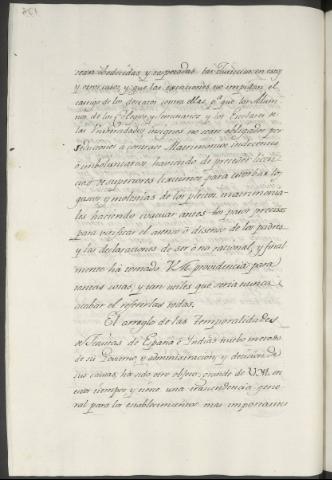 sean obedecidas, y respetadas las Justicias en estos
y otros casos, y que las excepciones no impidan el
castigo de los excesos contra ellas, pª que los Alum-
nos de los Colegios, y Seminarios y los Escolares de
las Universidades insignes no sean obligados por
seducciones a contraer Matrimonios indecorosos
ó involuntarios, haviendo de preceder licen-
cias de superiores lexitimos para evitar los
gastos y molestias de los pleitos matrimonia-
les haciendo evacuar antes los pasos precisos
para verificar el asenso ó disenso de los padres
y las declaraciones de ser ó no racional, y final
mente há tomado V.M. providencia para
tantas cosas, y tan utiles que seria nunca
acabar el referirlas todas.
El arreglo de las temporalidades
de España é Indias
de su Govierno, y administracion y decision de
sus causas, há sido otro objeto grande de V.M. en
este tiempo, y tiene una trascendencia gene-
ral para los establecimientos mas importantes